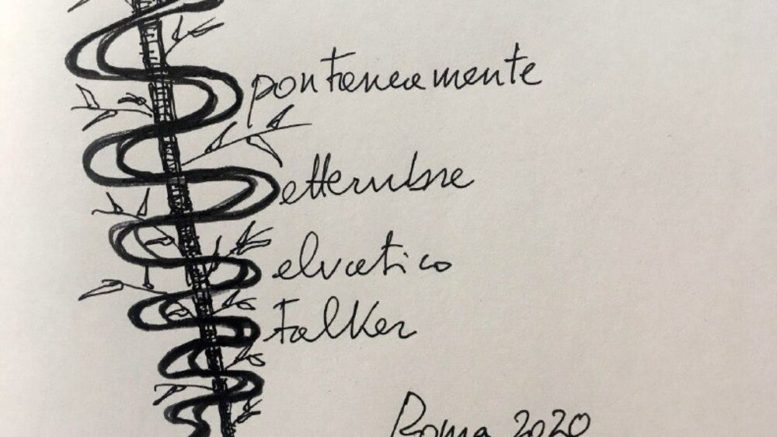 Spontaneamente
Settembre
Selvatico
Stalker
Roma 2020